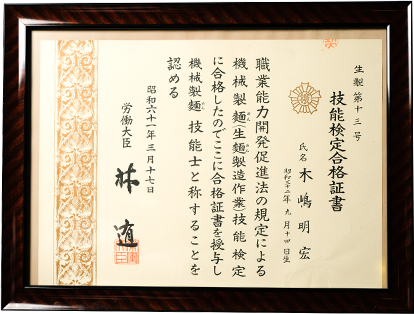 生製第十三号
技能検定合格証書
氏名 木嶋明宏
昭和三十二年九月十四日生
職業能力開発促進法の規定による
機械製麺(生麺製造作業)技能検定
に合格したのでここに合格証書を授与し
機械製麺技能士と称することを
認める
昭和六十一年三月十七日
労働大臣 林 逌